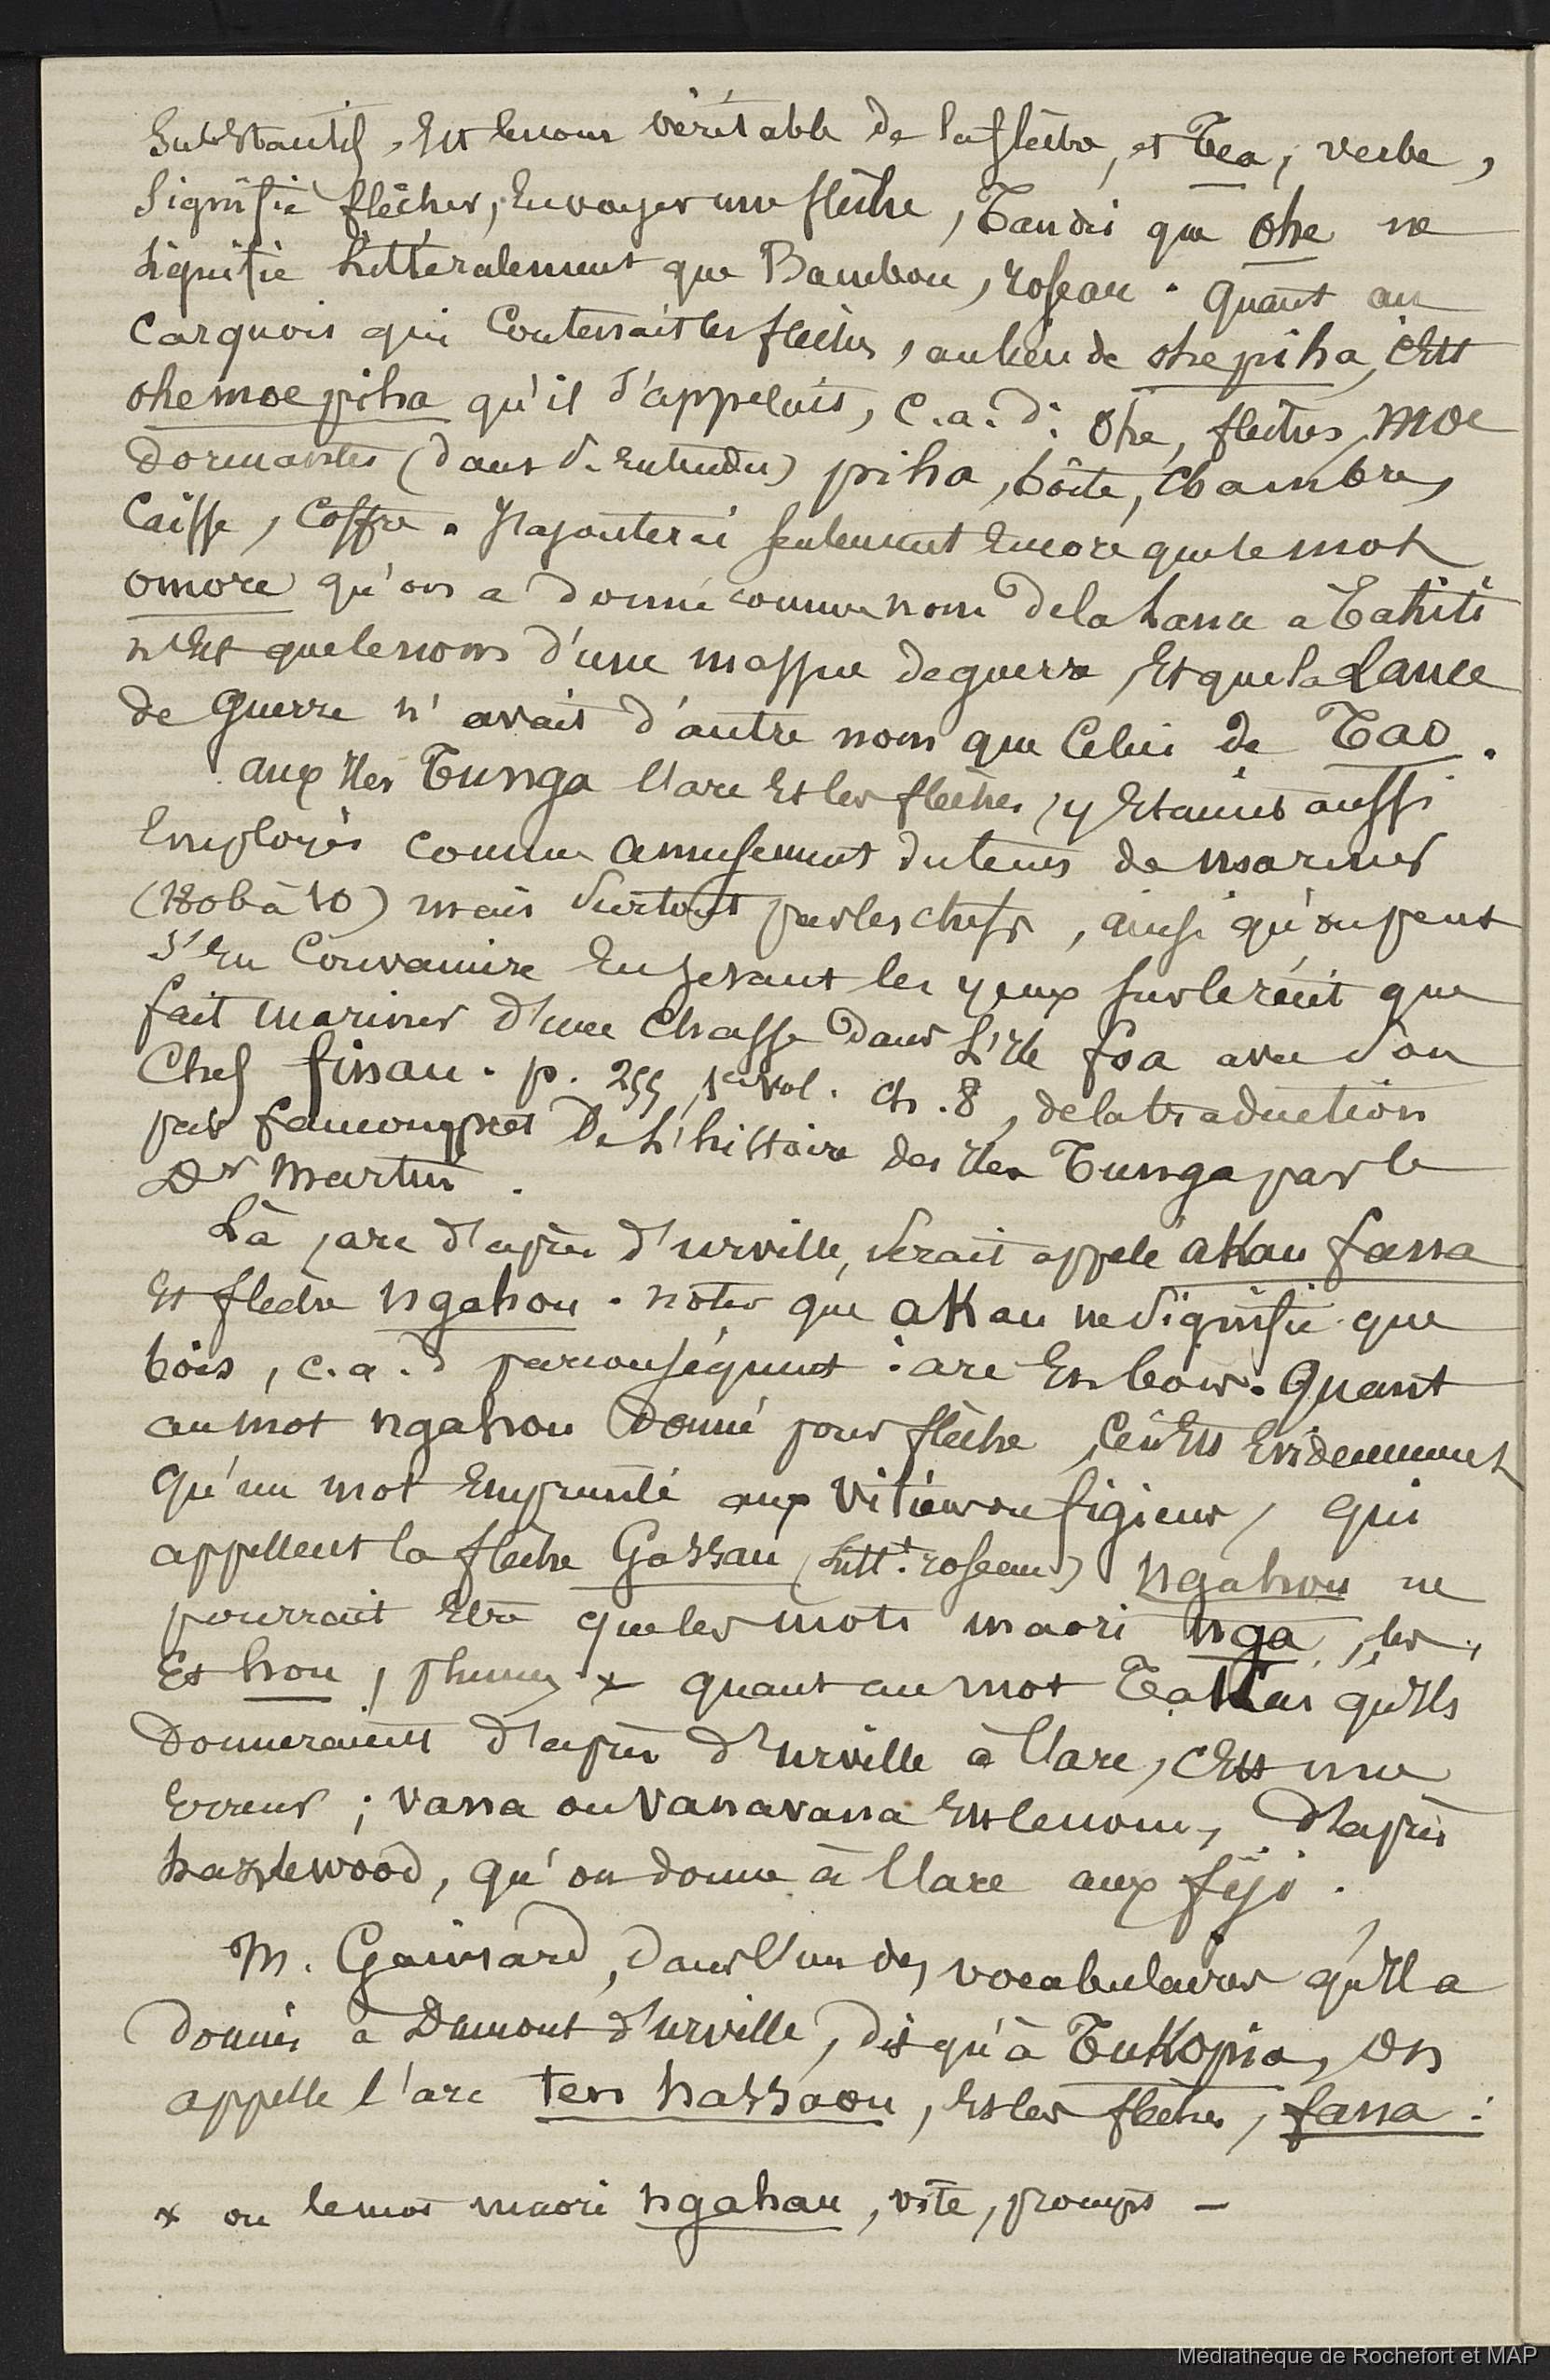 substantif, est le nom véritable de la flèche, et Tea, verbe,
signifie flêcher, envoyer une flèche, Tandis que ohe ne
signifie littéralement que Bambou, roseau. Quant au
carquois qui contenait les flèches, au lieu de ohe piha, c'est
ohe moe piha qu'il s'appelait, c.a.d: ohe, flèches, moe
dormantes (dans s. entendu) piha, bôite, chambre,
caisse, coffre. J'ajouterai seulement encore que le mot
omore qu'on a donné comme nom de la lance à Tahiti
n'est que le nom d'une massue de guerre, et que la Lance
de Guerre n'avait d'autre nom que celui de Tao.
aux îles Tunga l'arc et les flèches, y étaient aussi
employés comme amusement du tems de mariner
(1806 à 10) mais surtout par les chefs, ainsi qu'on peut
s'en convaincre en jetant les yeux sur le récit que
fait mariner d'une chasse dans L'île foa avec son
Chef finau. p. 255, 1er vol. ch. 8, de la traduction
par fauconpret De L'histoire des îles Tunga par le
Dr Martin.
Là, arc d'après d'urville, serait appelé aKau fanna
et flèche ngahou. noter que aKau ne signifie que
bois, c.a.d par conséquent : arc en bois. Quant
au mot ngahou donné pour flèche, ce n'est evidemment
qu'un mot emprunté aux Vitiens ou figiens, qui
appellent la flèche Gassau (litt.t roseau) ngahou ne
pourrait être que les mots maori nga, les,
et hou, plume x quant au mot TaKaï qu'ils
donneraient d'après d'urville à l'arc, c'est une
erreur ; vanna ou vanavana est le nom, d'après
hazlewood, qu'on donne à l'arc aux fiji.
M. Gaimard, dans l'un des vocabulaires qu'il a
donnés à Dumont d'urville, dit qu'à TuKopia, on
appelle l'arc ten hassaou, et les flèches, fanna :
x ou le mot maori ngahau, vite, prompt –
Médiathèque de Rochefort et MAP